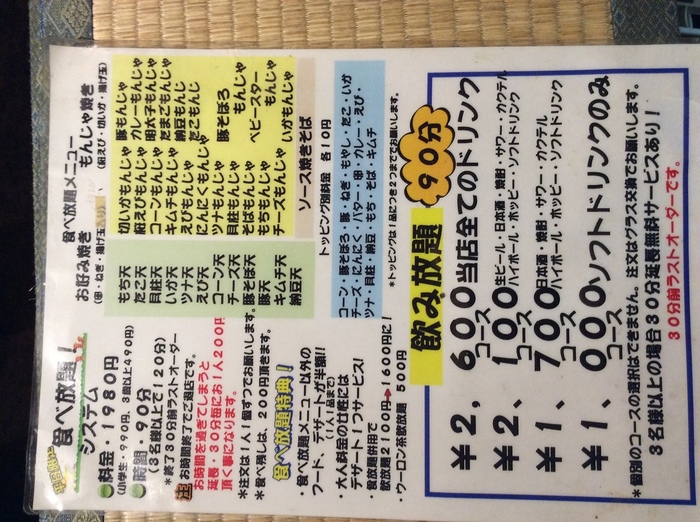 平日限定 食べ放題！
システム
料金・1980円
(小学生・990円、3歳以上490円)
時間・90分
(3名様以上で120分)
*終了30分前ラストオーダー
お時間終了でご退店です。
お時間を過ぎてしまうと
延長・30分毎にお1人200円
頂く事になります。
*注文は1人1個ずつでお願いします。
*食べ残しは、200円頂きます。
食べ放題特典！
・食べ放題メニュー以外の
フード、デザートが半額!!
(1人1品まで)
・大人料金の女性には
デザート1つサービス!
・食放題併用で
飲放題2100円→1600円に!
・ウーロン茶飲放題 500円
食べ放題メニュー
お好み焼き
もち天
たこ天
貝柱天
いか天
ツナ天
えび天
コーン天
チーズ天
豚そば天
豚天
キムチ天
納豆天
もんじゃ焼き
(桜えび・切いか・揚げ玉)
切いかもんじゃ
桜えびもんじゃ
コーンもんじゃ
キムチもんじゃ
えびもんじゃ
にんにくもんじゃ
ツナもんじゃ
貝柱もんじゃ
そばもんじゃ
もちもんじゃ
チーズもんじゃ
豚もんじゃ
カレーもんじゃ
明太子もんじゃ
たまごもんじゃ
納豆もんじ
たこもんじ
豚そぼろ
もんじゃ
ベビースター
もんじゃ
いかもんじゃ
ソース焼きそば
トッピング別料金 各10円
コーン・豚そぼろ・豚・ねぎ・もやし・たこ・いか
チーズ・にんにく・バター・卵・カレー・えび・
ツナ・貝柱・納豆・もち・そば・キムチ
*トッピングは1品につき2つまででお願いします。
飲み放題 90分
¥2,600コース 当店全てのドリンク
¥2,100コース 生ビール・日本酒・焼酎・サワー・カクテル
ハイボール・ホッピー・ソフトドリンク
¥1,700コース 日本酒・焼酎・サワー・カクテル
ハイボール・ホッピー・ソフトドリンク
¥1,000コース ソフトドリンクのみ
*個別のコースの選択はできません。注文はグラス交換でお願いします。
3名様以上の場合30分延長無料サービスあり！
30分前ラストオーダーです。